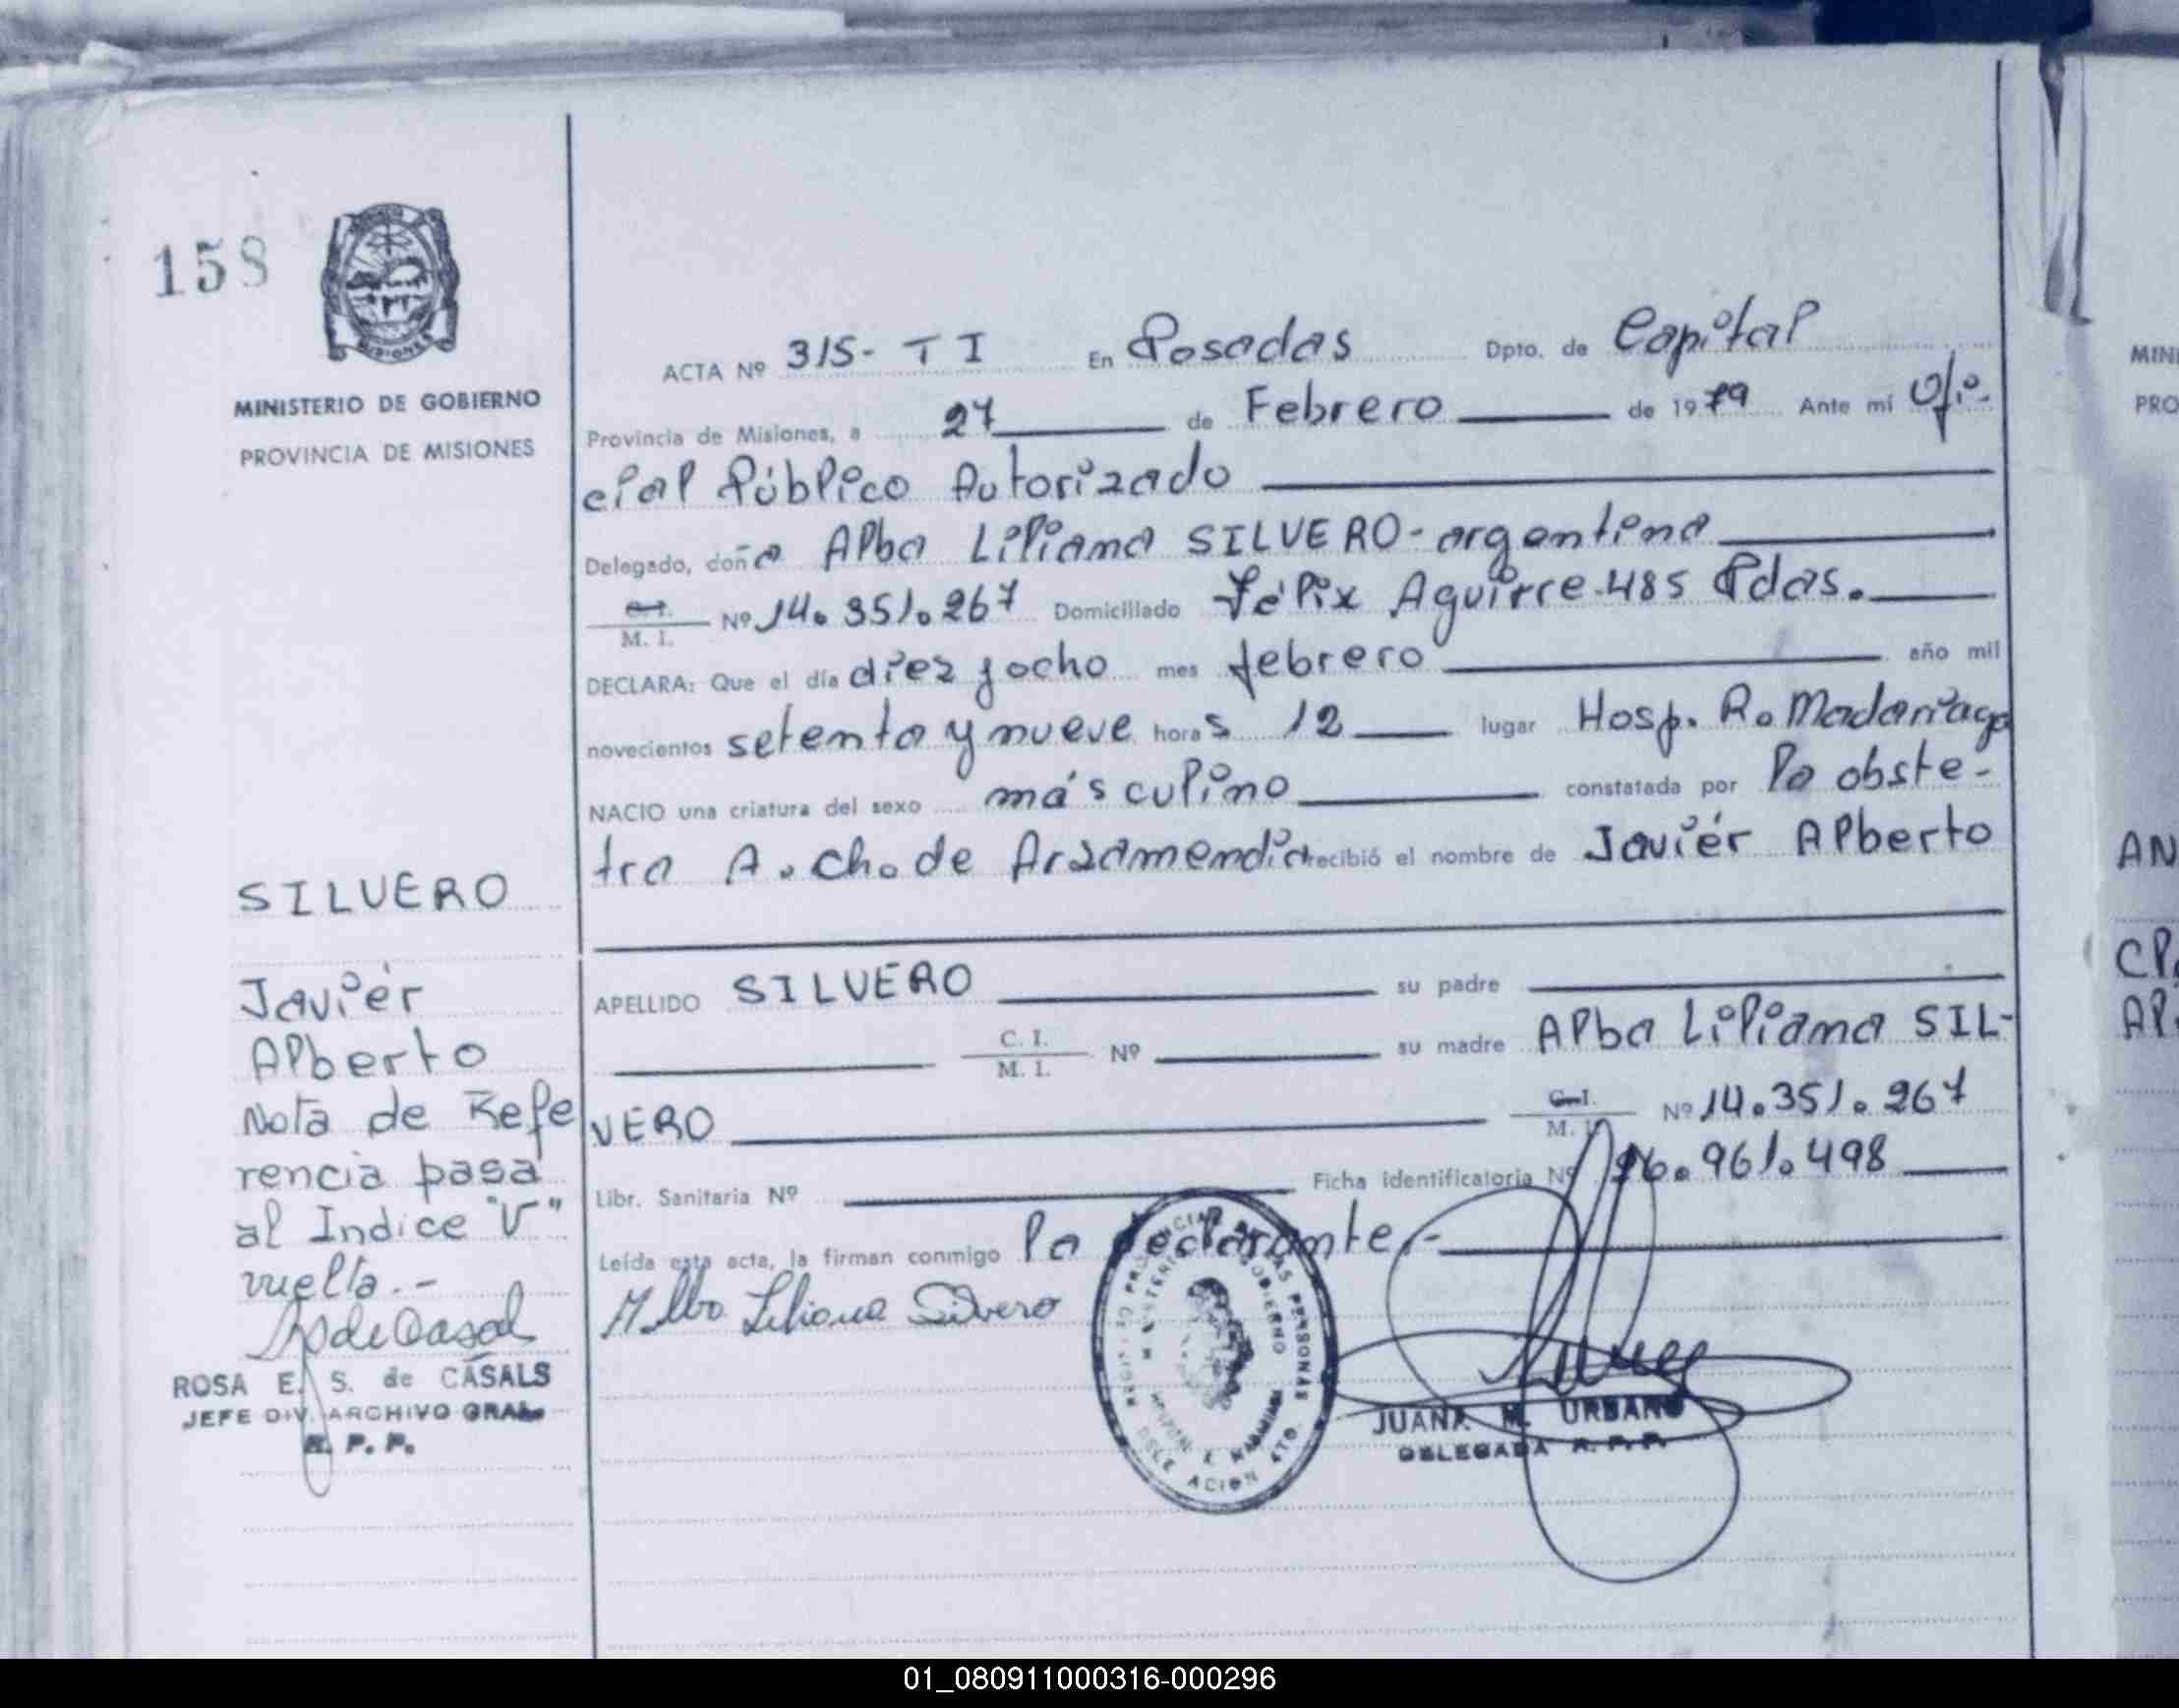 158
MISIONES
MINISTERIO DE GOBIERNO
PROVINCIA DE MISIONES
ACTA Nº 315- TI En Posadas Dpto. de Capital
Provincia de Misiones, a 27 de Febrero de 1979 Ante mí Ofi-
cial Público Autorizado
Delegado, doña Alba Liliana SILVERO-argentina
C.I. M. I. Nº 14.351.267 Domiciliado Félix Aguirre-485 Pdas.
DECLARA: Que el día diez y ocho mes febrero año mil
novecientos setenta y nueve horas 12 lugar Hosp. R. Madariaga
NACIO una criatura del sexo másculino constatada por la obste-
tra A. Ch. de Arzamendia recibió el nombre de Javiér Alberto
SILVERO
Javiér
Alberto
Nota de Refe
rencia pasa
al Indice "V"
vuelta.-
ROSA E. S. de CASALS
JEFE DIV. ARCHIVO GRAL.
R. P. P.
APELLIDO SILVERO su padre
C. I. M. I. Nº su madre Alba Liliana SIL-
VERO C.I. M. I. Nº 14.351.267
Libr. Sanitaria Nº Ficha identificatoria Nº 26.961.498
Leída esta acta, la firman conmigo la declarante.-
Alba Liliana Silvero
JUANA M. URBANO
DELEGADA R. P. P.
MINI
PRO
AN
CP
AP
01_080911000316-000296